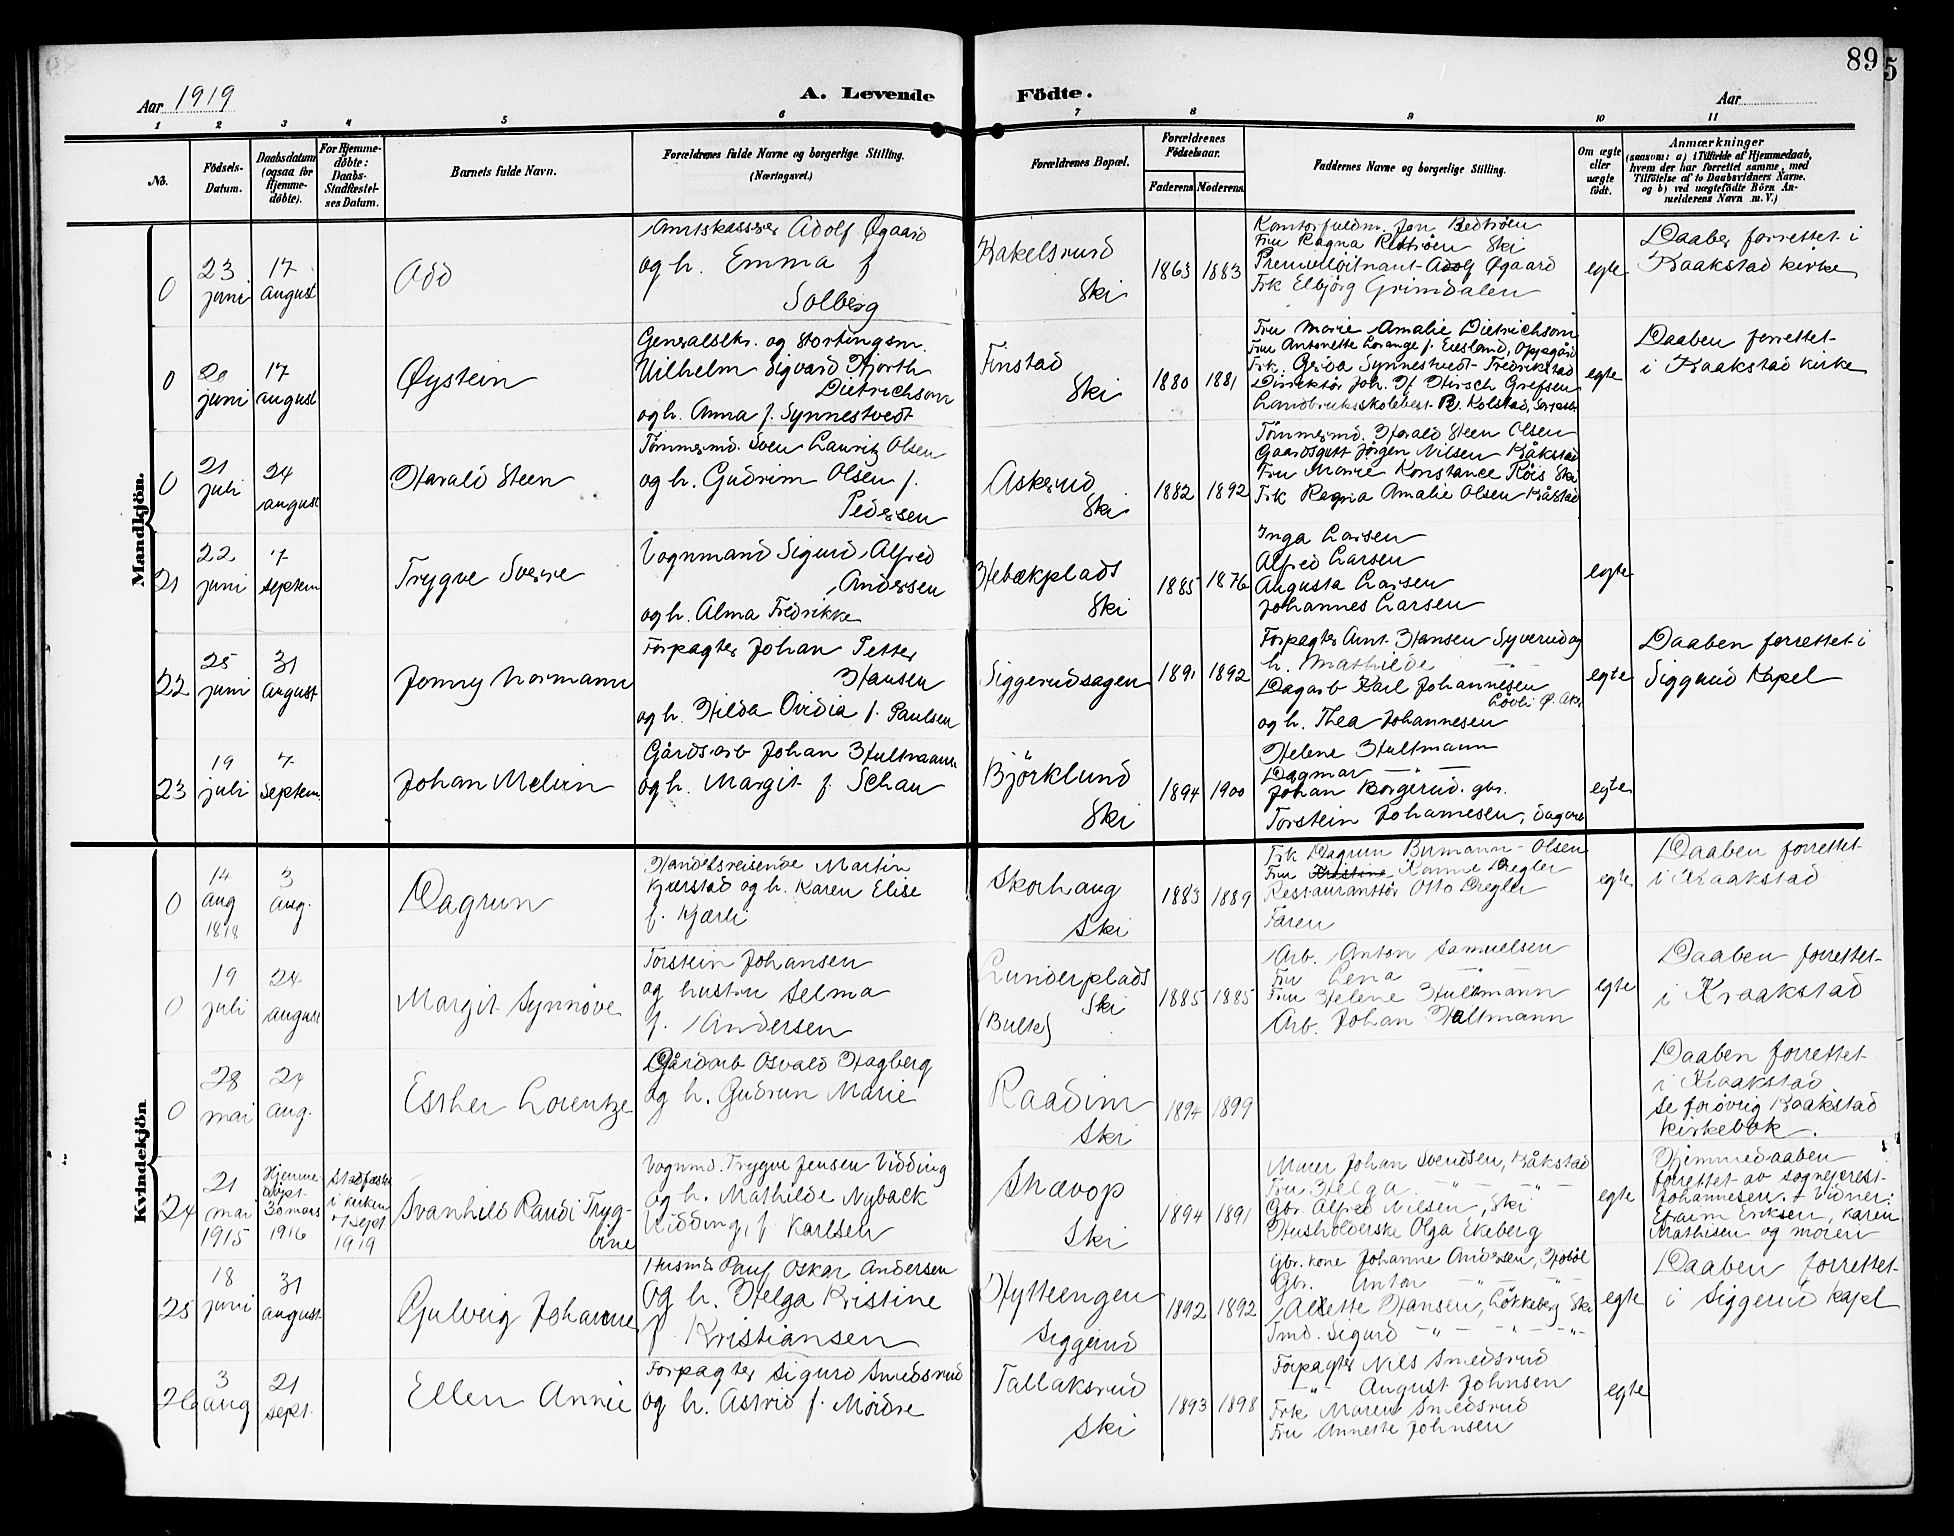 89
5
Aar 1919
A. Levende
Födte.
Aar
1
2
3
4
5
6
7
8
9
10
11
No.
Födsels-
Datum.
Daabsdatum
(ogsaa for
Hjemme-
døbte).
For Hjemme-
døbte:
Daabs-
Stadfæstel-
ses Datum.
Barnets fulde Navn.
Forældrenes fulde Navne og borgerlige Stilling.
(Næringsvei.)
Forældrenes Bopæl.
Forældrenes
Födselsaar.
Faderens
Moderens
Faddernes Navne og borgerlige Stilling.
Om ægte
eller
uægte
født.
Anmærkninger
(saasom: a) i Tilfælde af Hjemmedaab,
hvem der har forrettet samme, med
Tilföielse af to Daabsvidners Navne.
og b) ved uægtefödte Börn An-
melderens Navn m. V.)
Mandkjön.
0
23
juni
17
august
Odd
Amtskasserer Adolf Øgaard
og h. Emma f
Solberg
Kakelsrud
Ski
1863
1883
Kontorfuldm. Jon Redtröen
Fru Ragna Redtröen Ski
Premierløitnant Adolf Øgaard
Frk Elbjörg Grimdalen
egte
Daaben forrettet i
Kraakstad kirke
0
20
juni
17
august
Øystein
Generalsekr. og stortingsm.
Wilhelm Sigvard Hjorth
Dietrichson
og h. Anna f. Synnestvedt
Finstad
Ski
1880
1881
Fru Marie Amalie Dietrichson
Fru Antonette Lorange f. Enesland, Oppegård
Frk. Gerda Synnestvedt Fredrikstad
Direktør Joh. Hirsch Grefsen
Landbruksskolebest. R. Kolstad,
egte
Daaben forrettet
i Kraakstad kirke
0
21
juli
24
august
Harald Steen
Tömmermd. Sven Lauritz Olsen
og h. Gudrun Olsen f.
Pedersen
Askerud
Ski
1882
1892
Tömmermd. Harald Steen Olsen
Gaardsgutt Jörgen Nilsen Kråkstad
Fru Marie Konstance Röis Ski
Frk Ragna Amalie Olsen Kråkstad
21
22
juni
7
septem
Trygve Sverre
Vognmand Sigurd Alfred
Andersen
og h. Alma Fredrikke
Hebækplads
Ski
1885
1876
Inga Larsen
Alfred Larsen
Augusta Larsen
Johannes Larsen
egte
22
25
juni
31
august
Jonny Normann
Forpagter Johan Petter
Hansen
og h. Hilda Ovidia f. Paulsen
Siggerudsagen
1891
1892
Forpagter Amt Hansen Syverud og
h. Mathilde
Dagarb Karl Johannesen
og h. Thea Johannesen
egte
Daaben forrettet i
Siggerud Kapel
23
19
juli
7
septem.
Johan Melvin
Gårdsarb Johan Hultmann
og h. Margit f. Schau
Björklund
Ski
1894
1900
Helene Hultmann
Dagmar — " —
Johan Borgerud. gbr.
Torstein Johannesen, dagarb
egte
Kvindekjön
0
14
aug
1818
3
aug.
Dagrun
Handelsreisende Martin
Kjærstad og h. Karen Elise
f. Kjærli
Skorhaug
Ski
1883
1889
Frk Dagrun Birmann-Olsen
Fru Kristine Hanne Dregler
Restauranttör Otto Dregler
Faren
egte
Daaben forrettet
i Kraakstad
0
19
juli
24
august
Margit Synnöve
Torstein Johansen
og hustru Selma
f. Andersen
Lunderplads
Ski
(Bulter)
1885
1885
Arb. Anton Samuelsen
Fru Lena — " —
Fru Helene Hultmann
Arb. Johan Hultmann
egte
Daaben forrettet
i Kraakstad
0
28
mai
24
aug.
Esther Lorentze
Gårdarb Osvald Hagberg
og h. Gudrun Marie
Raadim
Ski
1894
1899
Daaben forrettet
i Kraakstad
Se forövrig Kraakstad
Kirkebok.
24
21
mai
1915
Hjemme-
døpt
30 mars
1916
Stadfæstet
i kirken
7 sept
1919
Svanhild Randi Tryg-
vine
Vognmd. Trygve Jensen Vidding
og h. Mathilde Nyback
Vidding, f. Karlsen
Skavop
Ski
1894
1891
Murer Johan Svendsen, Kråkstad
Fru Helga — " — " —
Gbr. Alfred Nilsen, Ski
Husholderske Olga Ekeberg
egte
Hjemmedaaben
forrettet av sogneprest
Johannesen. - Vidner:
Efraim Eriksen, Karen
Mathisen og moren
25
18
juni
31
august
Gulveig Johanne
Husmd Paul Oskar Andersen
og h. Helga Kristine
f. Kristiansen
Hytteengen
Siggerud
1892
1892
Gbr. kone Johanne Andersen, Hobøl
Gbr. Anton — " — " —
Alette Hansen, Løkkeberg Ski
Tmd. Sigurd — " — " — " —
egte
Daaben forrettet
i Siggerud Kapel
26
3
aug
21
sept.
Ellen Annie
Forpagter Sigurd Smedsrud
og h. Astrid f. Mördre
Tallaksrud
Ski
1893
1898
Forpagter Nils Smedsrud
— " — August Johnsen
Frk Maren Smedsrud
Fru Annette Johnsen
egte